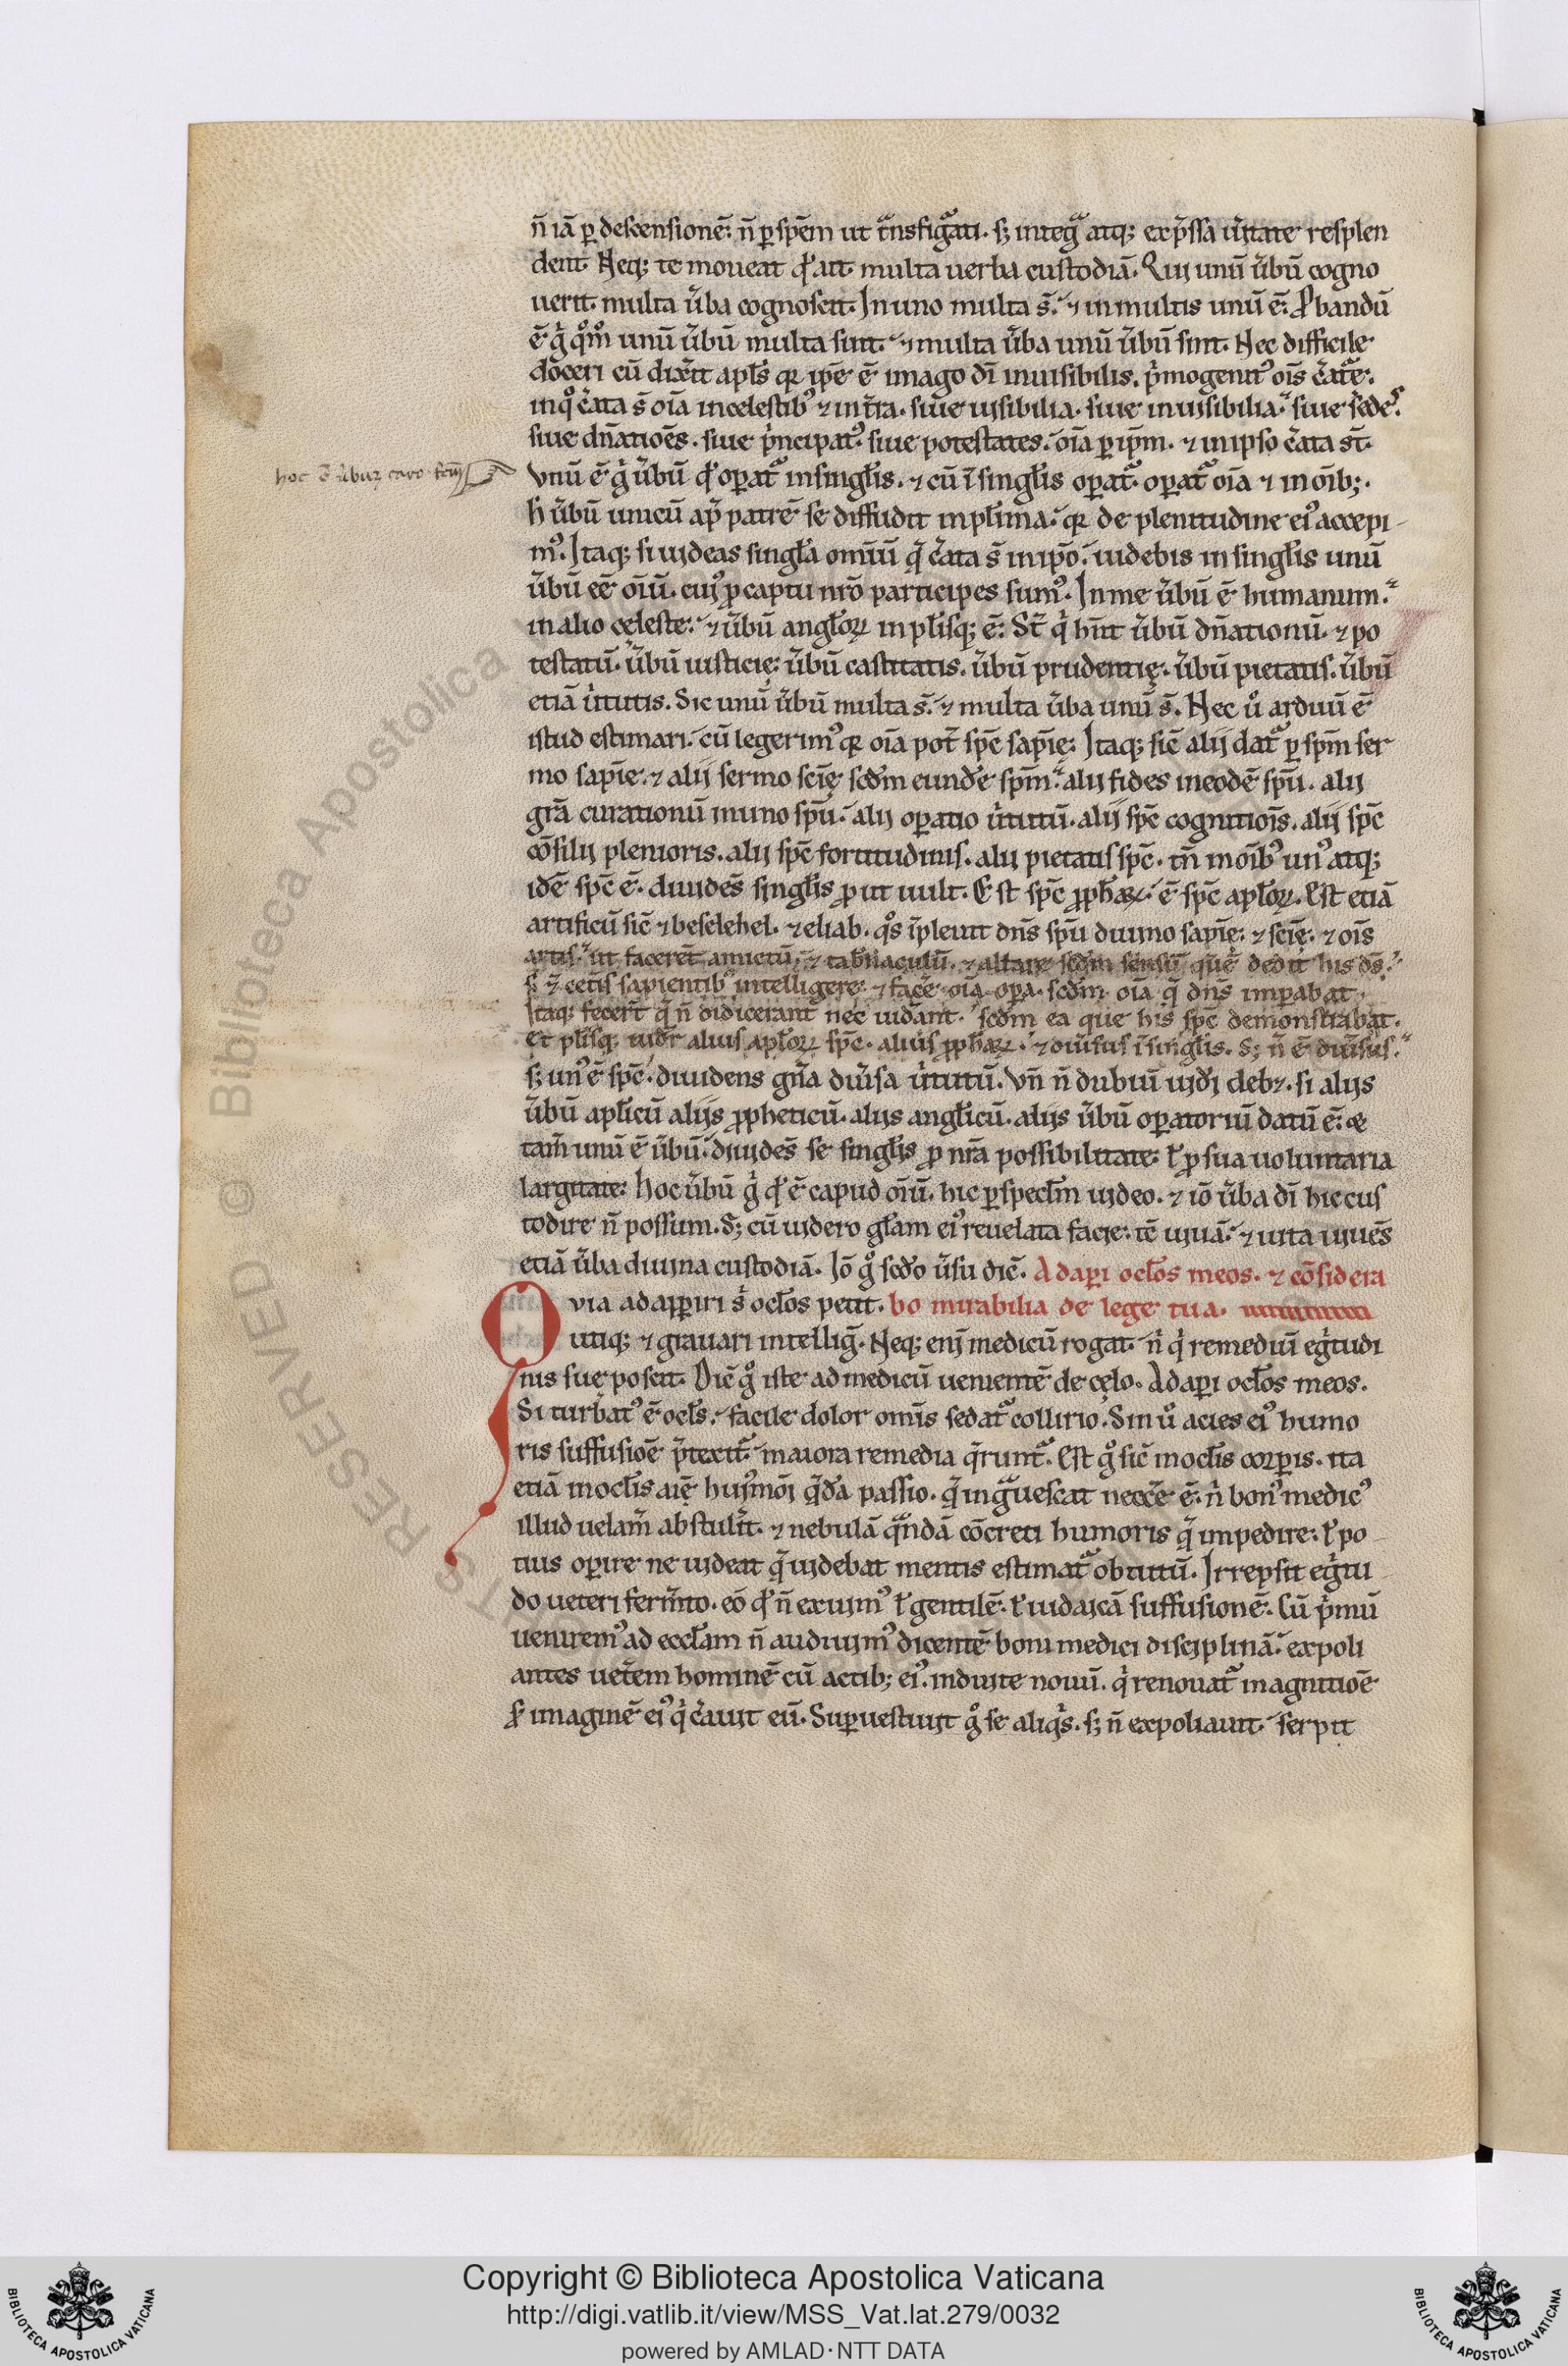 n̄ iā ꝑ descensionē: n̄ ꝑ spēm ut tͣnsfigͣati. sꝫ integͣ atqꝫ exp̄ssa ūitate resplen
dent. Neqꝫ te moueat qđ ait. multa uerba custodiā. Qui unū ūbū cogno
uerit. multa ūba cognoscit. In uno multa s̄. ⁊ in multis unū ē. Ꝓbandū
ē gͥ qͦm̊ unū ūbū multa sunt. ⁊ multa ūba unū ūbū sint. Nec difficile
doceri cū dixerit apl̄s qꝛ ip̄e ē imago dī inuisibilis. pͥmogenitꝰ oīs c̄atͣe.
in qͦ c̄ata s̄ oīa in celestibꝰ ⁊ in t̄ra. siue uisibilia. siue inuisibilia. siue sedeꝰ.
siue dn̄atioēs. siue pͥncipatꝰ. siue potestates. oīa ꝑ ip̄m. ⁊ in ipso c̄ata st̄.
Vnū ē gͥ ūbū qđ oꝑatͣ in singl̄is. ⁊ cū ī singl̄is oꝑatͣ. oꝑatͣ oīa ⁊ in oībꝫ.
h̄ ūbū unicū ap̄ patrē se diffudit in pl̄ima. qꝛ de plenitudine eiꝰ accepi-
mꝰ. Itaqꝫ si uideas singl̄a omiū q̄ c̄ata s̄ in ip̄o. uidebis in singl̄is unū
ūbū eē oīū. cuiꝰ ꝓ captu nr̄o participes sumꝰ. In me ūbū ē humanum.
in alio celeste. ⁊ ūbū angl̄oꝝ in pl̄isqꝫ ē. St̄ qͥ hn̄t ūbū dn̄ationū. ⁊ po
testatū. ūbū iusticię. ūbū castitatis. ūbū prudentię. ūbū pietatis. ūbū
etiā ūtutis. Sic unū ūbū multa s̄. ⁊ multa ūba unū s̄. Nec ů arduū ē
istud estimari. cū legerimꝰ qꝛ oīa pot̄ spc̄ sapīe. Itaqꝫ sic̄ alij datͣ ꝑ sp̄m ser
mo sapīe. ⁊ alij sermo scīę scđm eundē sp̄m. alij fides in eodē spū. alij
grā curationū in uno spū. alij oꝑatio ūtutū. alij spc̄ cognitiois. alij spc̄
cōsilij plenioris. alij spc̄ fortitudinis. alij pietatis spc̄. tn̄ in oībꝰ unꝰ atqꝫ
idē spc̄ ē. diuidēs singl̄is ꝓut uult. Est spc̄ ꝓph̄aꝝ. ē spc̄ apl̄oꝝ. Est etiā
artificū sic̄ ⁊ beselehel. ⁊ eliab. qͦs īpleuit dn̄s spū diuino sapīę. ⁊ scīę. ⁊ oīs
artis. ut facerēt amictū. ⁊ tab̄naculū. ⁊ altare scđm sensū quē dedit his dꝰ.
⁊ cet̄is sapientibꝰ intelligere. ⁊ face̅ oīa oꝑa. scđm oīa q̄ dn̄s imꝑabat
Itaqꝫ fecert̄ q̄ n̄ didicerant nec uid̄ant. scđm ea que his spc̄ demonstrabat.
Et pl̄isqꝫ uidr̄ alius apl̄oꝝ spc̄. alius ꝓph̄aꝝ. ⁊ diūsus ī singl̄is. Sꝫ n̄ ē diūsus.
sꝫ unꝰ ē spc̄. diuidens gr̄a diūsa ūtutū. Vn̄ n̄ dubiū uid̄i debꝫ. si alijs
ūbū apl̄icū alijs ꝓpheticū. alijs angl̄icū. alijs ūbū oꝑatoriū datū ē. &
tam̄ unū ē ūbū. diuidēs se singl̄is ꝓ nr̄a possibilitate. ł ꝓ sua uoluntaria
largitate. Hoc ūbū gͥ qđ ē capud oīū. hic ꝑ specl̄m uideo. ⁊ iō ūba dī hic cus
todire n̄ possum. Sꝫ cū uidero gl̄am eiꝰ reuelata facie. tc̄ uiuā. ⁊ uita uiuēs
etiā ūba diuina custodiā. Iō gͦ scđo ūsu dic̄. Adaꝑi ocl̄os meos. ⁊ cōsidera
Ovia adaꝑiri s̄ ocl̄os petit. bo mirabilia de lege tua.
utiqꝫ ⁊ grauari intellig̃. Neqꝫ enī medicū rogat. nͥ qͥ remediū eg̃tudi
nis sue poscit. Dic̄ gͦ iste ad medicū uenientē de cęlo. Adaꝑi ocl̄os meos.
Si turbatꝰ ē ocl̄s. facile dolor omīs sedatͣ collirio. Sin ů acies eiꝰ humo
ris suffusioē p̄texitͣ. maiora remedia q̄runtͣ. Est gͦ sic̄ in ocl̄is corꝑis. ita
etiā in ocl̄is aīę huiꝰmōi q̄đa passio. q̄ ingͣuescat neccē ē. nͥ bonꝰ medicꝰ
illud uelam̄ abstulīt. ⁊ nebulā qͣndā cōcreti humoris q̄ impedire. ł po-
tius oꝑire ne uideat q̄ uidebat mentis estimatͣ obtutū. Irrepsit eg̃tu-
do ueteri fermīto. eō qđ n̄ exuimꝰ ł gentilē. ł iudaicā suffusionē. Cū pͥmū
uenirem̄ꝰ ad eccl̄am n̄ audiuimꝰ dicentē boni medici disciplinā. expoli
antes uet̄em hominē cū actibꝫ eiꝰ. induite nouū. qͥ renouatͣ in agnitioē
imaginē eiꝰ qͥ c̄auit eū. Suꝑuestiuit gͦ se aliqͥs. sꝫ n̄ expoliauit. serpit
Copyright © Biblioteca Apostolica Vaticana
http://digi.vatlib.it/view/MSS_Vat.lat.279/0032
powered by AMLAD·NTT DATA
BIBLIOTECA APOSTOLICA VATICANA
BIBLIOTECA APOSTOLICA VATICANA